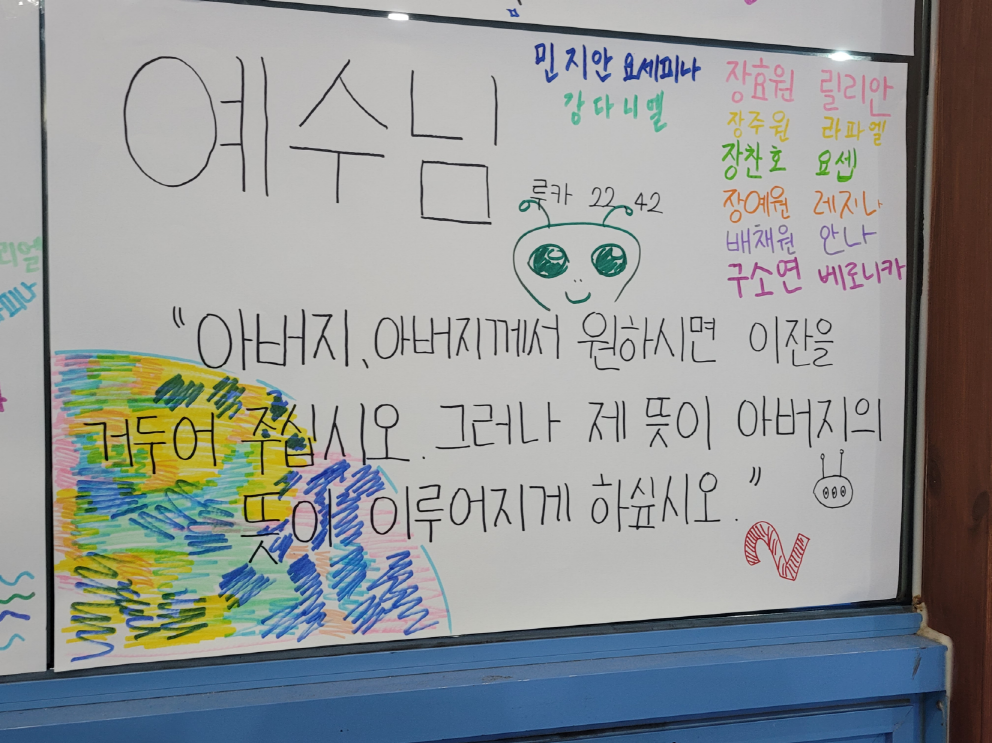 예수님
민지안 요세피나
강다니엘
장효원 릴리안
장주원 라파엘
장찬호 요셉
장예원 레지나
배채원 안나
구소연 베로니카
루카 22 42
"아버지, 아버지께서 원하시면 이잔을
거두어 주십시오. 그러나 제 뜻이 아버지의
뜻이 이루어지게 하싶시오."
2
리엘
피나